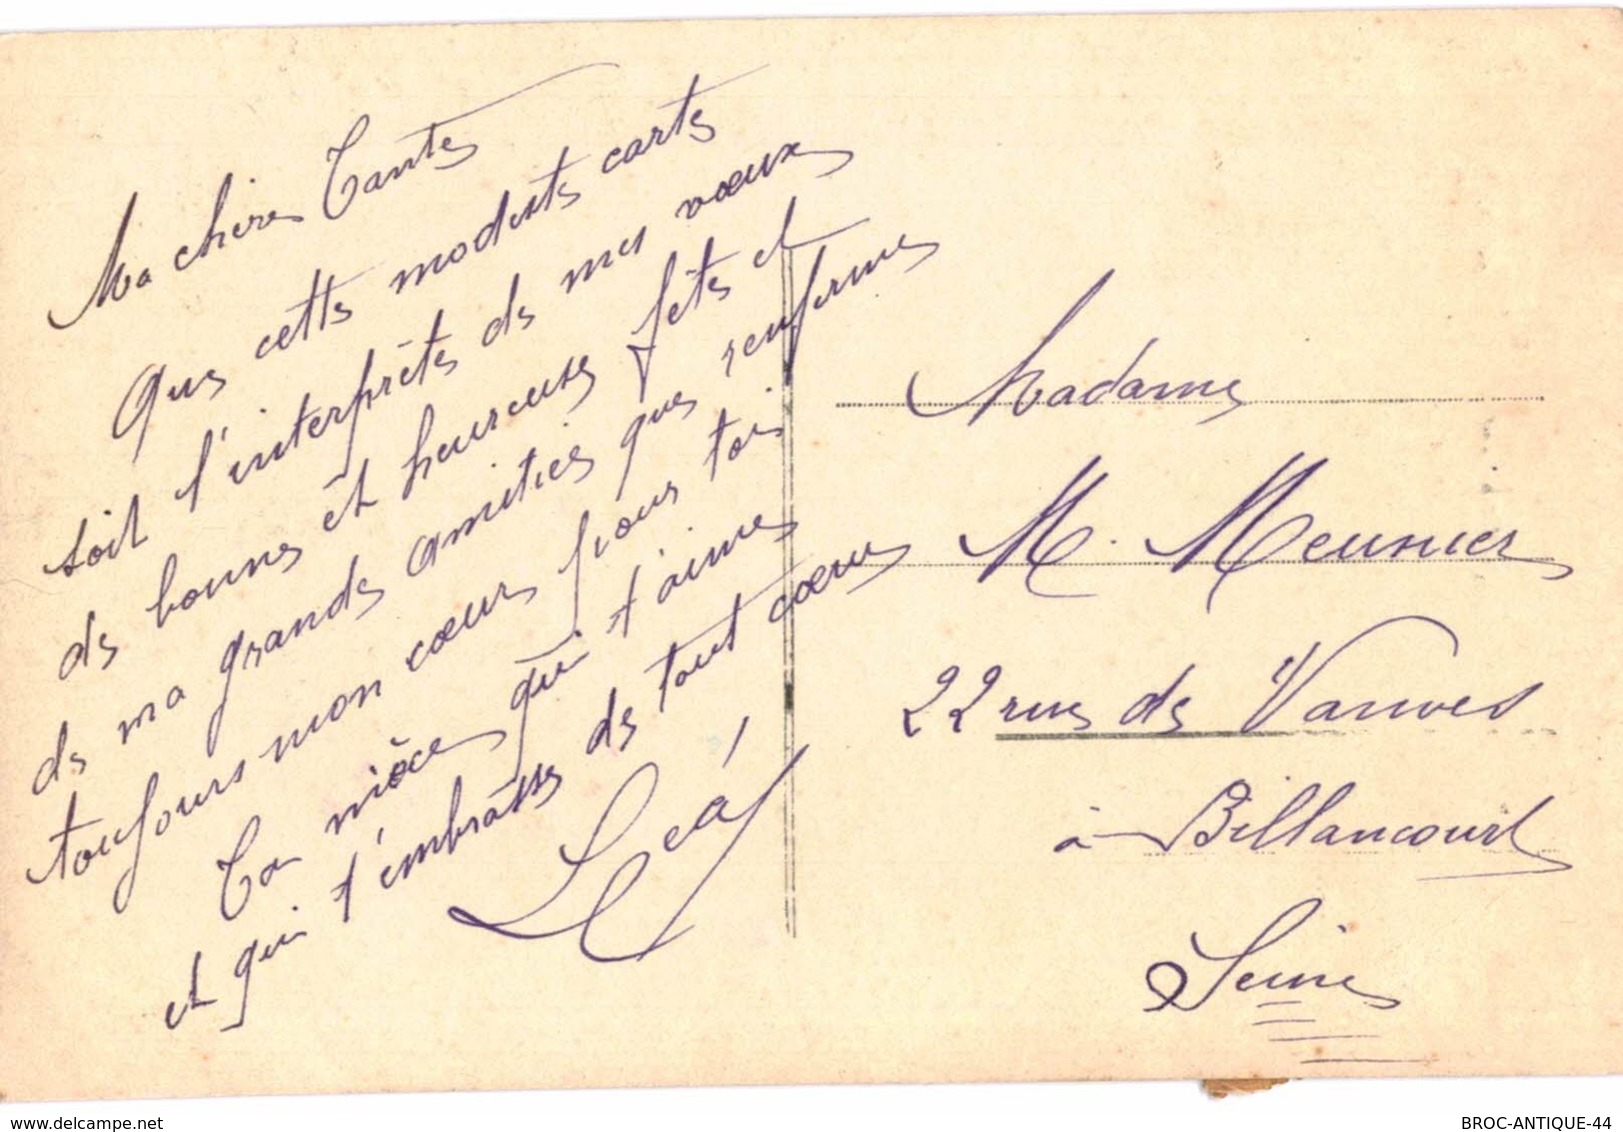 Ma chère Tante
Que cette modeste carte
soit l'interprête de mes vœux
de bonne et heureuse fête et
de ma grande amitiée que renferme
toujours mon cœur pour toi
Ta nièce qui t'aime
et qui t'embrâsse de tout cœur
Léa
Madame
M. Meunier
22 rue de Vanves
à Billancourt
Seine
delcampe.net
BROC-ANTIQUE-44